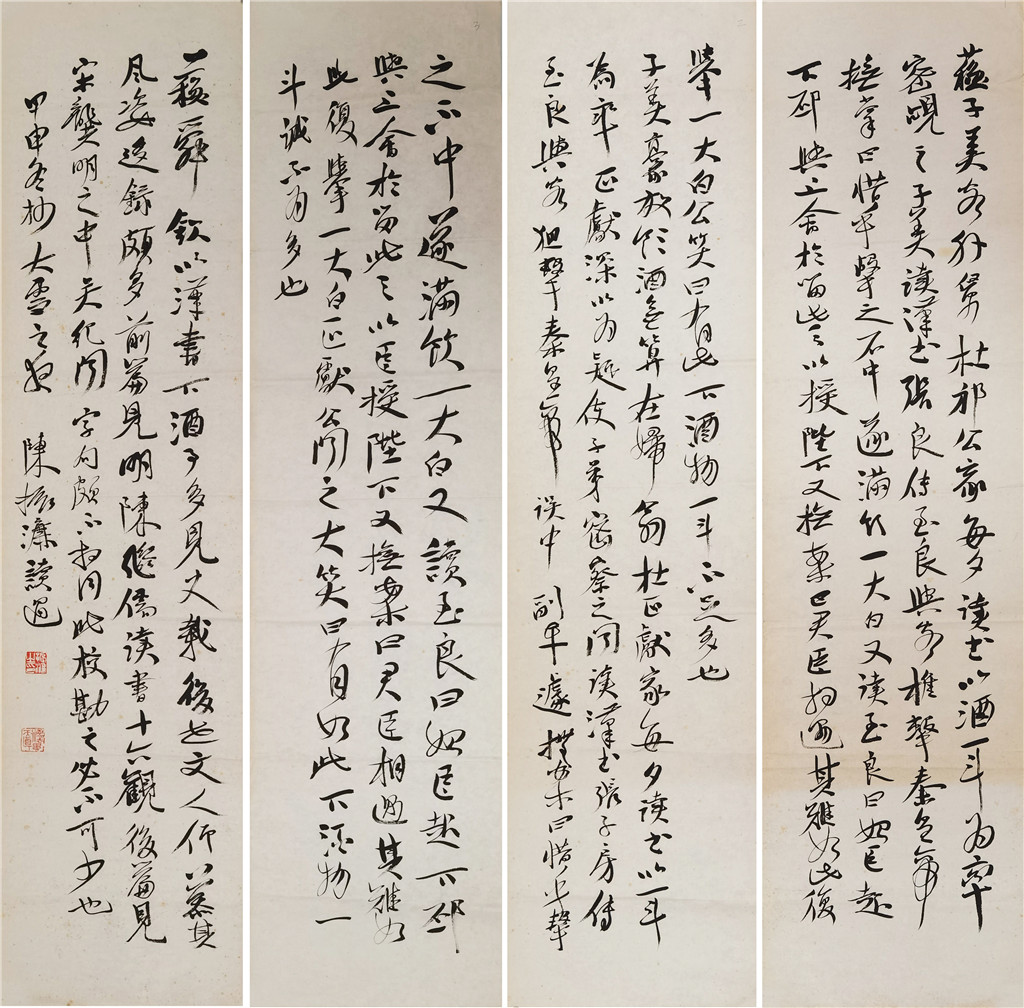 蘇子美客外舅杜祁公家每夕读书以酒一斗为率
密覘之子美读漢书張良传至良與客椎擊秦皇帝
撫掌曰惜乎擊之不中遂满飲一大白又读至良曰始臣起
下邳與上會於留此天以授陛下又撫案曰君臣相遇其難如此復
舉一大白公笑曰有此下酒物一斗不足多也
子美豪放飲酒無算在婦翁杜正獻家每夕读书以一斗
為率正獻深以为疑使子弟密察之闻读漢书張子房傳
至良與客狙擊秦皇帝误中副車遽撫案曰惜乎擊
之不中遂满飲一大白又讀至良曰始臣起下邳
與上會於留此天以臣授陛下又撫案曰君臣相遇其難如
此復舉一大白正獻公闻之大笑曰有如此下酒物一
斗誠不为多也
蘇舜欽以漢書下酒事多見史載後世文人仰慕其
风姿迻録頗多前篇見明陳繼儒读書十六觀後篇見
宋龔明之中吴纪闻字句頗不相同此校勘之必不可少也
甲申冬杪大雪之夜 陳振濂讀過